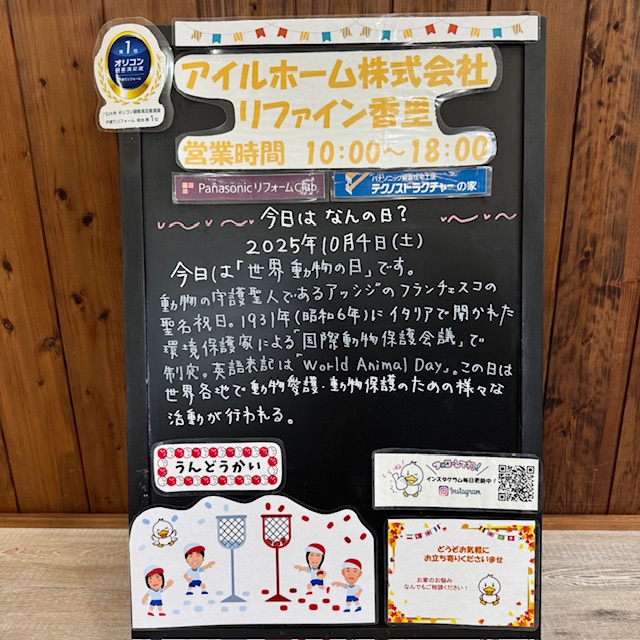 第1位
オリコン
顧客満足度
戸建てリフォーム
アイルホーム株式会社
リファイン香里
営業時間 10:00～18:00
Panasonic リフォームClub
テクノストラクチャーの家
今日は なんの日？
2025年10月4日(土)
今日は「世界動物の日」です。
動物の守護聖人であるアッシジのフランチェスコの
聖名祝日。1931年(昭和6年)にイタリアで開かれた
環境保護家による「国際動物保護会議」で
制定。英語表記は「World Animal Day」。この日は
世界各地で動物愛護・動物保護のための様々な
活動が行われる。
うんどうかい
フォローしてね！
インスタグラム毎日更新中！
Instagram
どうぞお気軽に
お立ち寄りくださいませ
お家のお悩み
なんでもご相談ください！